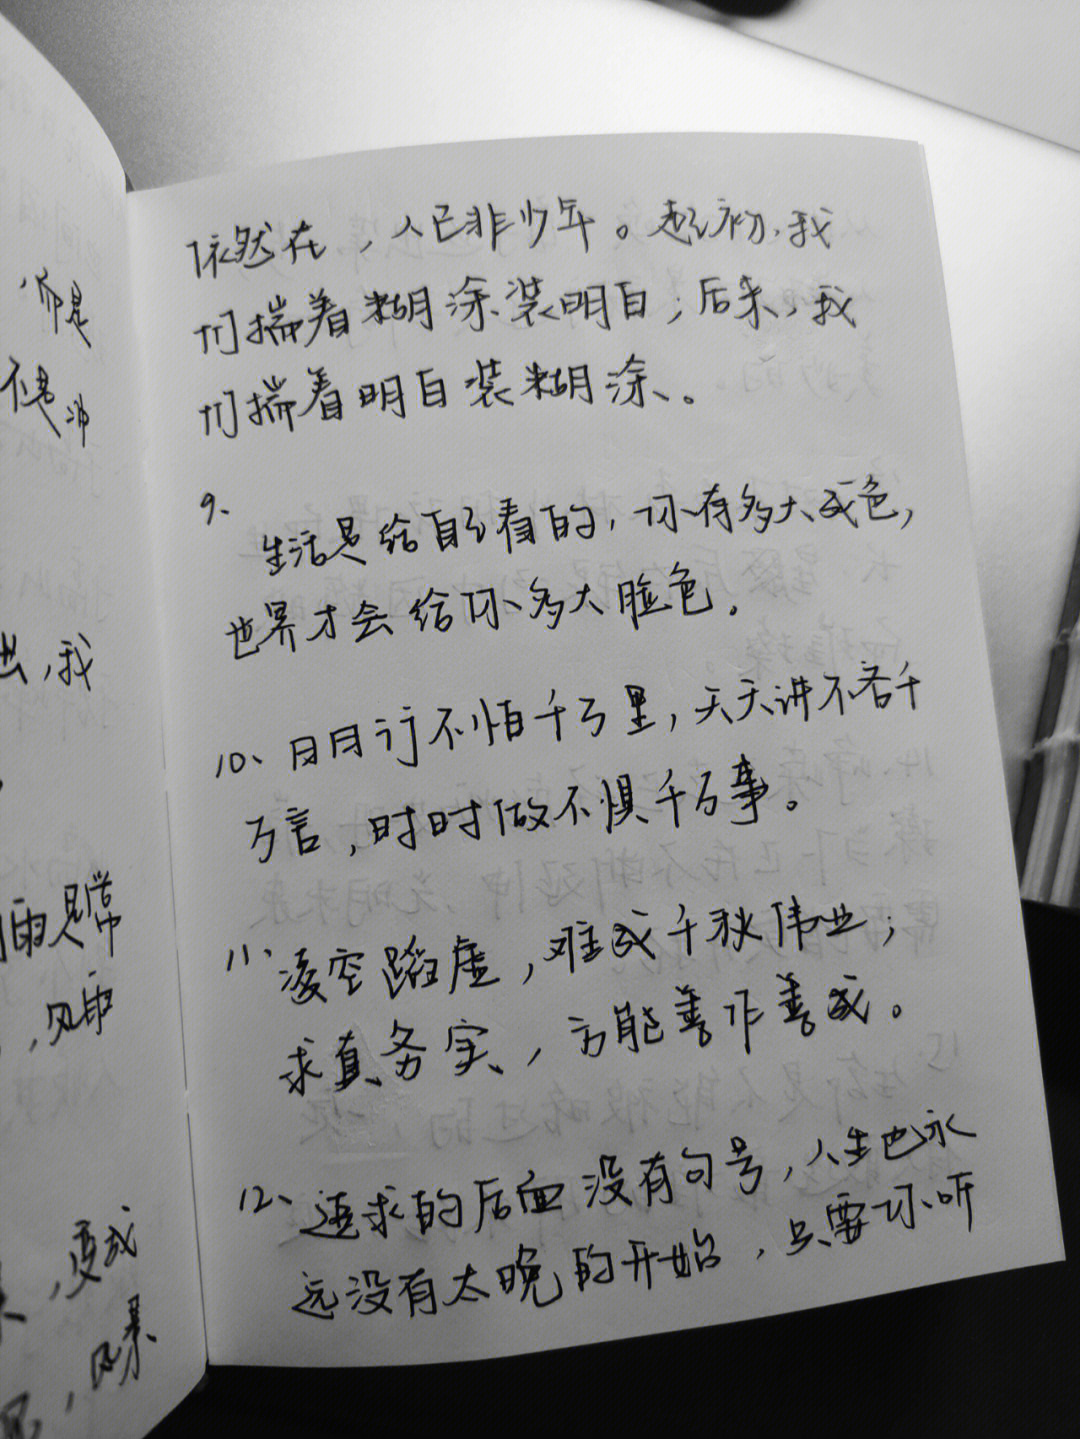 而是
不是
冲
出，我
雨是常
，风雨
，变成
，风景
依然在，人已非少年。起初，我
们揣着糊涂装明白；后来，我
们揣着明白装糊涂。
9、
生活是给自己看的，你有多大成色，
世界才会给你多大脸色。
10、日日行不怕千万里，天天讲不吝千
万言，时时做不惧千万事。
11、凌空蹈虚，难成千秋伟业；
求真务实，方能善作善成。
12、追求的后面没有句号，人生也永
远没有太晚的开始，只要你听